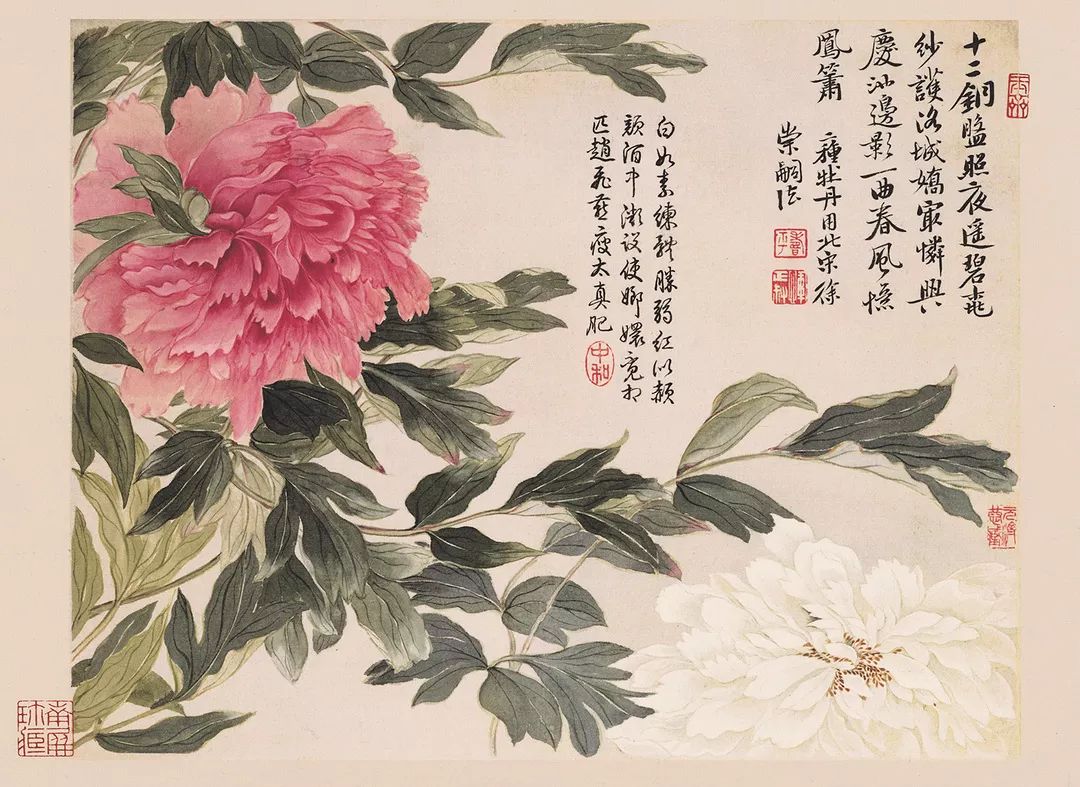 十二銅盤照夜遥碧桃
紗護洛城嬌最憐興
慶池邊影一曲春風憶
鳳簫
種牡丹用北宋徐
崇嗣法
白如素練勝弱紅似
顏酒中潮設使嬛竟相
匹趙飛燕瘦太真肥
中和